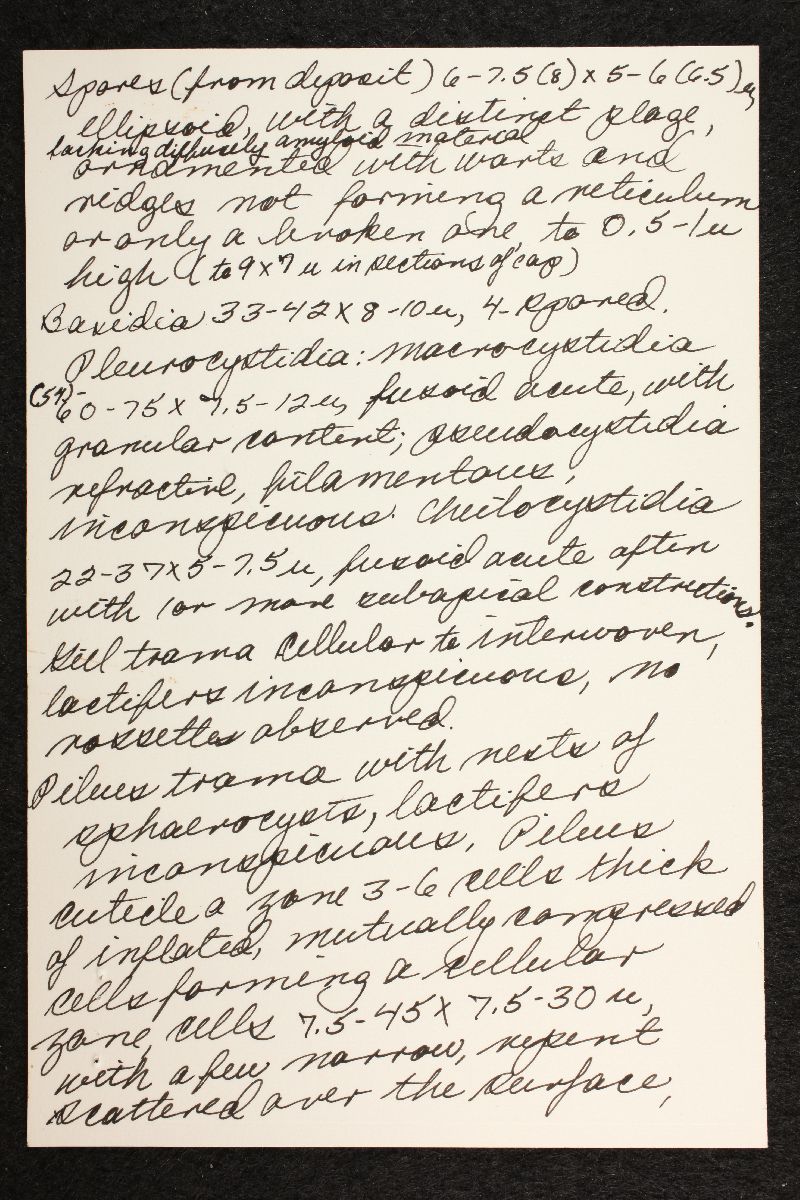 Spores (from deposit) 6-7.5(8) x 5-6(6.5) u,
ellipsoid, with a distinct plage,
lacking diffusely amyloid material
ornamented with warts and
ridges not forming a reticulum
or only a broken one, to 0.5-1u
high (to 9x7 u in sections of cap)
Basidia 33-42 x 8-10u, 4-spored.
Pleurocystidia: macrocystidia
(54)-
60-75 x 7.5-12u, fusoid acute, with
granular content; pseudocystidia
refractive, filamentous,
inconspicuous. Cheilocystidia
22-37x5-7.5u, fusoid acute often
with 1 or more subapical constrictions.
Gill trama cellular to interwoven,
lactifers inconspicuous, no
rossettes observed.
Pileus trama with nests of
sphaerocysts, lactifers
inconspicuous. Pileus
cuticle a zone 3-6 cells thick
of inflated, mutually compressed
cells forming a cellular
zone, cells 7.5-45 x 7.5-30 u,
with a few narrow, repent
scattered over the surface,